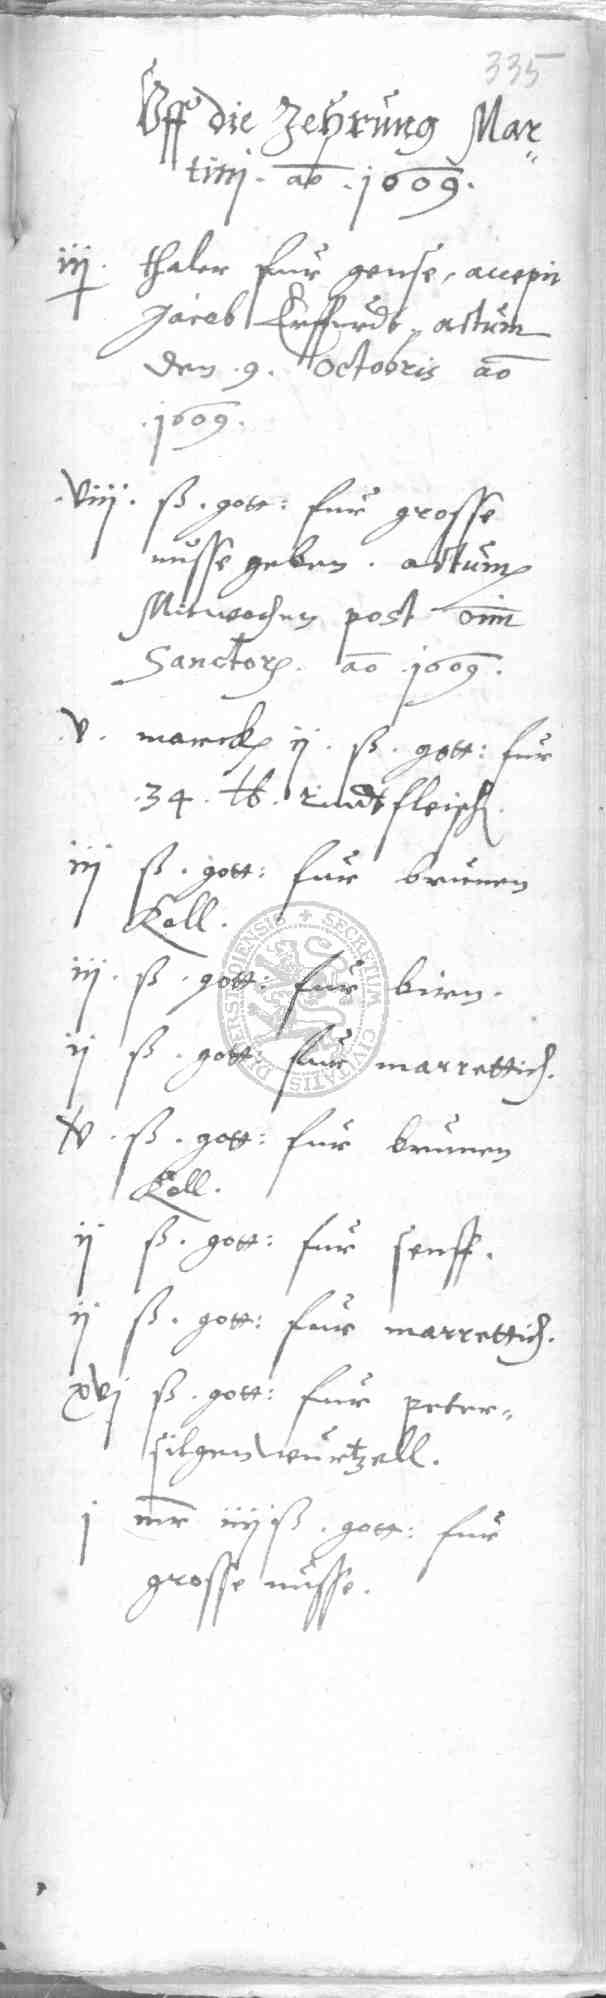 335
Vff die Zehrung Mar
tinj. ao. 1609.
iij. thaler fur gense, accepit
Jacob Erffurdt, actum
den .9. Octobris ao
.1609.
.viij. ß. gott: fur grosse
nusse geben. actum
Mitwochen post oim
Sanctor. ao .1609.
.v. marck ij. ß. gott: fur
.34. lb. rindtfleisch.
iij ß. gott: fur brunen
Koll.
iij. ß. gott: fur birn.
ij ß. gott: fur marrettich.
v. ß. gott: fur brunen
Koll.
ij ß. gott: fur senff.
ij ß. gott: fur marrettich.
xvj ß. gott: fur peter=
silgen wurtzell.
j mr iiij ß. gott: fur
grosse nusse.
SECRETUM CIVITATIS DIVERSTADIENSIS